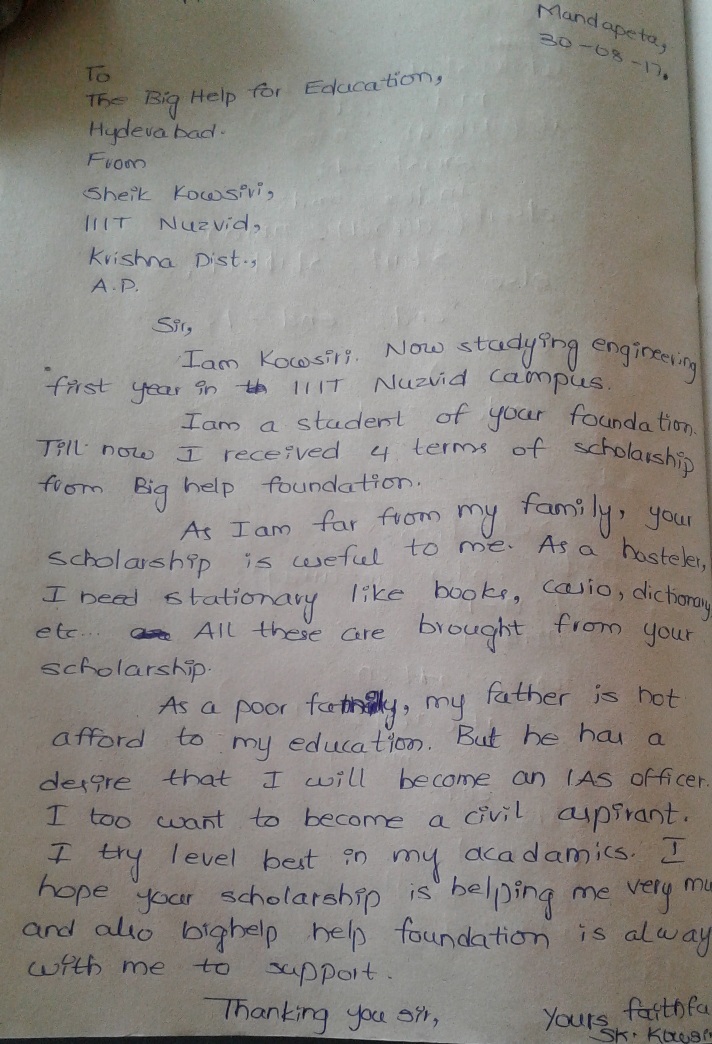 Mandapeta,
30-08-17.
To
The Big Help for Education,
Hyderabad.
From
Sheik Kowsiri,
IIIT Nuzvid,
Krishna Dist.,
A.P.
Sir,
Iam Kowsiri. Now studying engineering
first year in IIIT Nuzvid campus.
Iam a student of your foundation.
Till now I received 4 terms of scholarship
from Big help foundation.
As Iam far from my family, your
scholarship is useful to me. As a hosteler,
I need stationary like books, casio, dictionary
etc... All these are brought from your
scholarship.
As a poor family, my father is not
afford to my education. But he has a
desire that I will become an IAS officer.
I too want to become a civil aspirant.
I try level best in my acadamics. I
hope your scholarship is helping me very mu
and also bighelp help foundation is alway
with me to support.
Thanking you sir,
Yours faithfu
SK. Kowsi